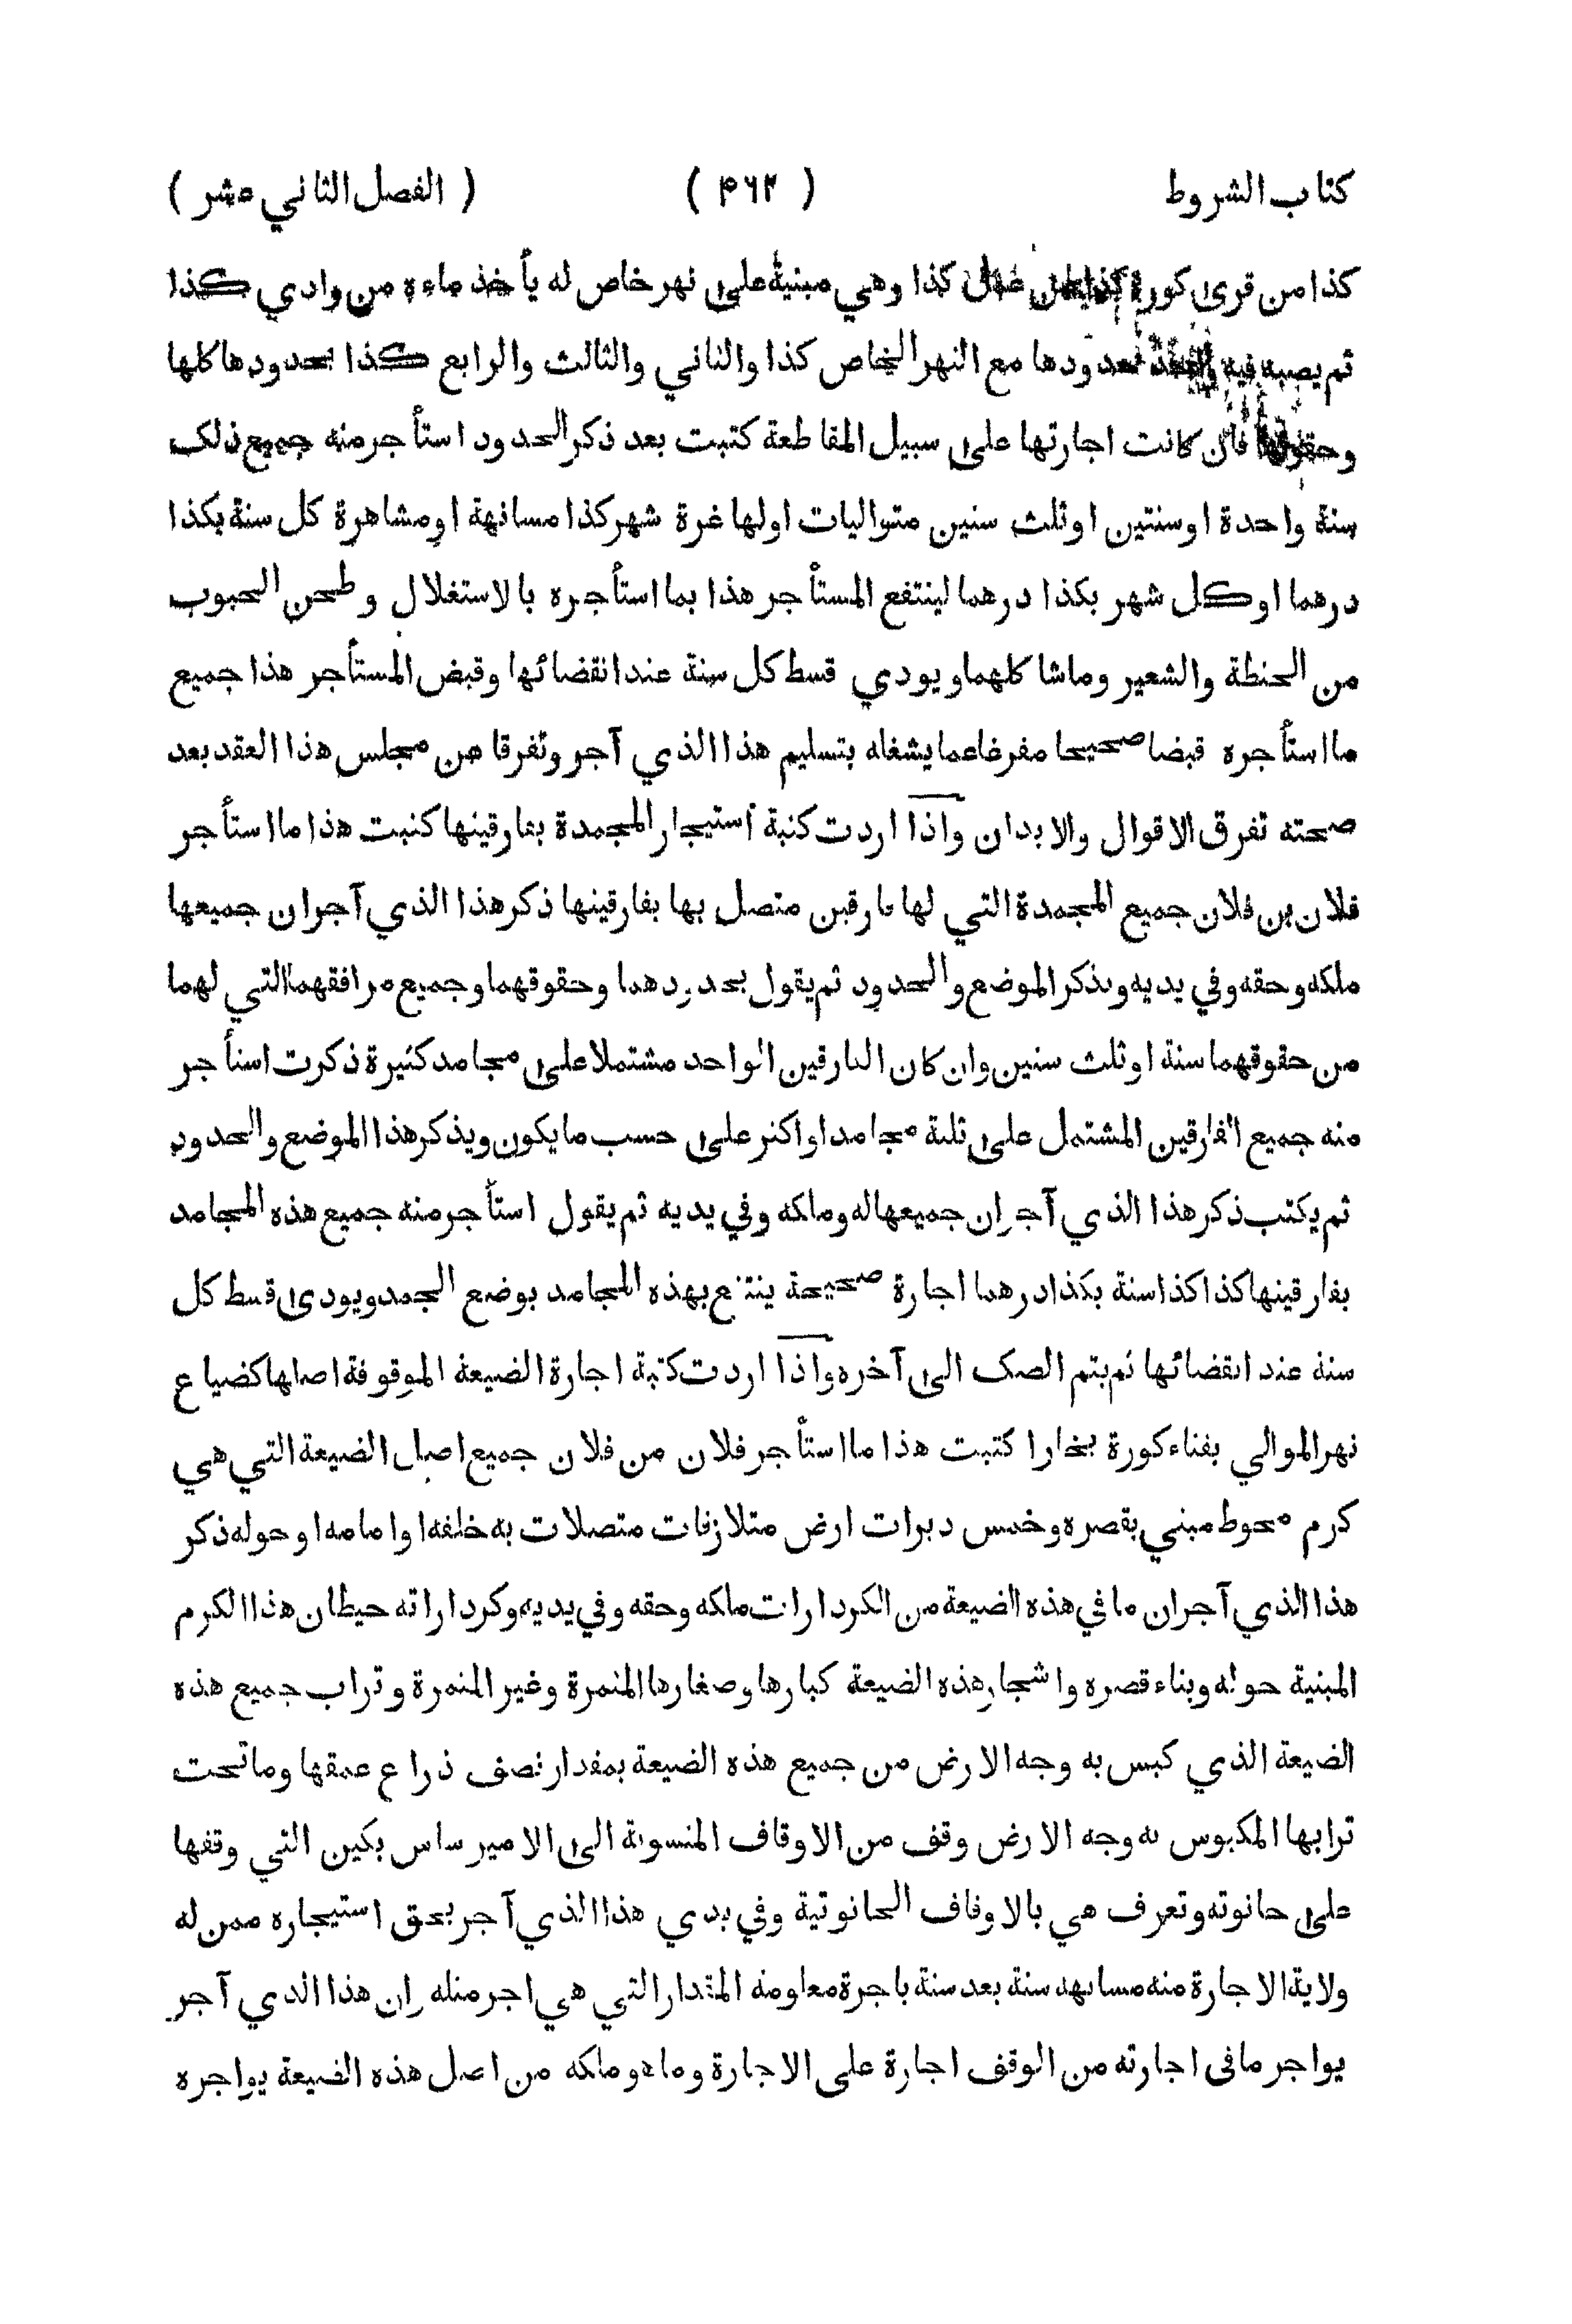 كتاب الشروط ( ۴۶۲ ) ( الفصل الثاني عشر )
كذا من قرى كورة كذا من عمل كذا وهي مبنية على نهر خاص له يأخذ ماءه من وادي كذا
ثم يصبه فيه حدودها مع النهر الخاص كذا والثاني والثالث والرابع كذا بحدودها كلها
وحقوقها فان كانت اجارتها على سبيل المقاطعة كتبت بعد ذكر الحدود استأجر منه جميع ذلك
سنة واحدة او سنتين او ثلث سنين متواليات اولها غرة شهر كذا مسانهة او مشاهرة كل سنة بكذا
درهما او كل شهر بكذا درهما لينتفع المستأجر هذا بما استأجره بالاستغلال وطحن الحبوب
من الحنطة والشعير وما شاكلهما ويودي قسط كل سنة عند انقضائها وقبض المستأجر هذا جميع
ما استأجره قبضا صحيحا مفرغا عما يشغله بتسليم هذا الذي آجر وتفرقا عن مجلس هذا العقد بعد
صحته تفرق الاقوال والابدان واذا اردت كتبة استيجار المجمدة بفارقينها كتبت هذا ما استأجر
فلان بن فلان جميع المجمدة التي لها فارقين متصل بها بفارقينها ذكر هذا الذي آجر ان جميعها
ملكه وحقه وفي يديه ويذكر الموضع والحدود ثم يقول بحدودهما وحقوقهما وجميع مرافقهما التي لهما
من حقوقهما سنة او ثلث سنين وان كان الفارقين الواحد مشتملا على مجامد كثيرة ذكرت استأجر
منه جميع الفارقين المشتمل على ثلثة مجامد او اكثر على حسب ما يكون ويذكر هذا الموضع والحدود
ثم يكتب ذكر هذا الذي آجر ان جميعها له وملكه وفي يديه ثم يقول استأجر منه جميع هذه المجامد
بفارقينها كذا كذا سنة بكذا درهما اجارة صحيحة ينتفع بهذه المجامد بوضع الجمد ويودى قسط كل
سنة عند انقضائها ثم يتم الصك الى آخره واذا اردت كتبة اجارة الضيعة الموقوفة اصلها كضياع
نهر الموالي بفناء كورة بخارا كتبت هذا ما استأجر فلان من فلان جميع اصل الضيعة التي هي
كرم محوط مبني بقصره وخمس دبرات ارض متلازقات متصلات به خلفه او امامه او حوله ذكر
هذا الذي آجر ان ما في هذه الضيعة من الكردارات ملكه وحقه وفي يديه وكرداراته حيطان هذا الكرم
المبنية حوله وبناء قصره واشجار هذه الضيعة كبارها وصغارها المثمرة وغير المثمرة وتراب جميع هذه
الضيعة الذي كبس به وجه الارض من جميع هذه الضيعة بمقدار نصف ذراع عمقها وما تحت
ترابها المكبوس به وجه الارض وقف من الاوقاف المنسوبة الى الامير ساس بكين التي وقفها
على حانوته وتعرف هي بالاوقاف الحانوتية وفي يدي هذا الذي آجر بحق استيجاره ممن له
ولاية الاجارة منه مسانهة سنة بعد سنة باجرة معلومة المقدار التي هي اجر مثله وان هذا الذي آجر
يواجر ما فى اجارته من الوقف اجارة على الاجارة وما هو ملكه من اصل هذه الضيعة يواجره